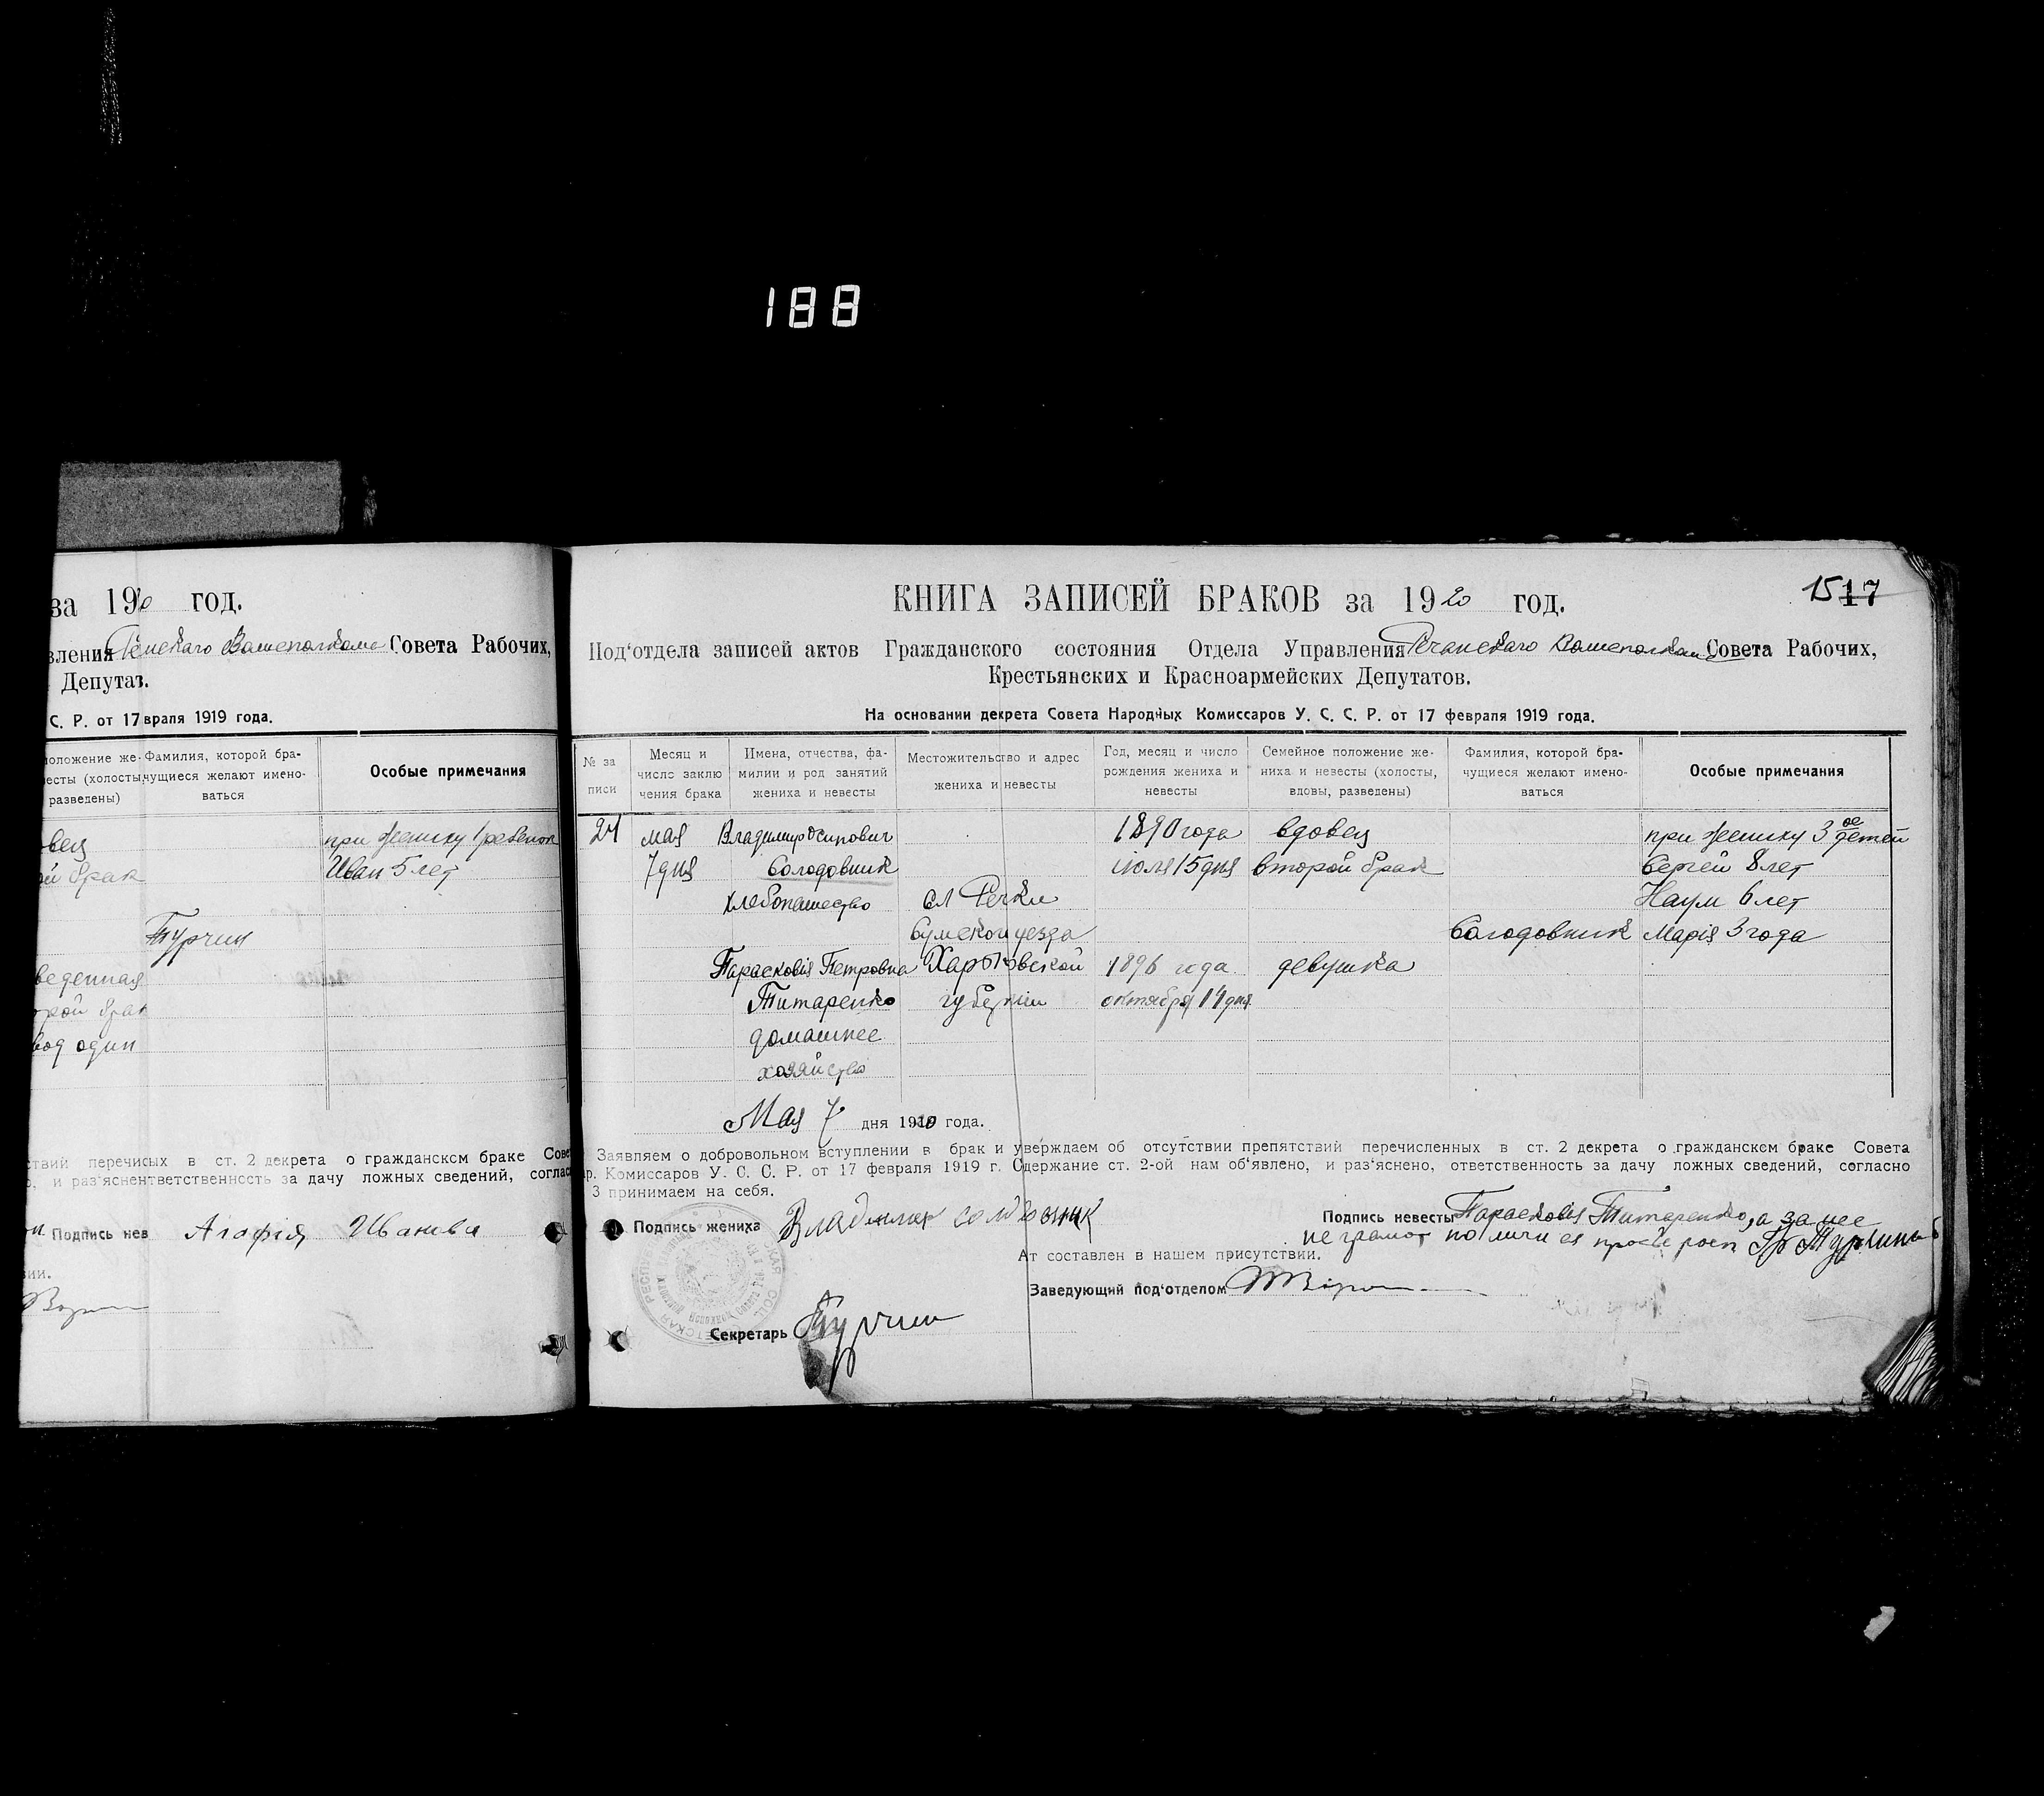 188
за 1920 год.
Речанскаго Волисполкома Совета Рабочих,
Депутат.
С. Р. от 17 враля 1919 года.
Фамилия, которой бра-
чущиеся желают имено-
ваться
разведены)
Особые примечания
при женику 1 ребенок
Иван 5 лет
ой брак
Турчин
веденная
орой брак
вод один
в ст. 2 декрета о гражданском браке
за дачу ложных сведений,
Подпись нев Агафія Иванова
15 17
КНИГА ЗАПИСЕЙ БРАКОВ за 1920 год.
Под'отдела записей актов Гражданского состояния Отдела Управления Речанскаго Волисполкома Совета Рабочих,
Крестьянских и Красноармейских Депутатов.
На основании декрета Совета Народных Комиссаров У. С. С. Р. от 17 февраля 1919 года.
№ за
писи
Месяц и
число заклю
чения брака
Имена, отчества, фа-
милии и род занятий
жениха и невесты
Местожительство и адрес
жениха и невесты
Год, месяц и число
рождения жениха и
невесты
Семейное положение же-
ниха и невесты (холосты,
вдовы, разведены)
Фамилия, которой бра-
чущиеся желают имено-
ваться
Особые примечания
24 мая Владимир Осипович 1890 года вдовец при женику 3ое детей
7 дня Солодовник июля 15 дня второй брак Сергей 8 лет
хлебопашество сл Речки Наум 6 лет
Сумской уезда Солодовник Марія 3 года
Парасковія Петровна Харьковской 1896 года девушка
Титаренко губерніи октября 14 дня
домашнее
хозяйство
Мая 7 дня 1920 года.
Заявляем о добровольном вступлении в брак и утверждаем об отсутствии препятствий перечисленных в ст. 2 декрета о гражданском браке Совета
р. Комиссаров У. С. С. Р. от 17 февраля 1919 г. Одержание ст. 2-ой нам об'явлено, и раз'яснено, ответственность за дачу ложных сведений, согласно
3 принимаем на себя.
Подпись жениха Владимир солдовник
Подпись невесты Парасковія Титаренко, а за нее
Ат составлен в нашем присутствии.
Заведующий под'отделом
Секретарь Турчин